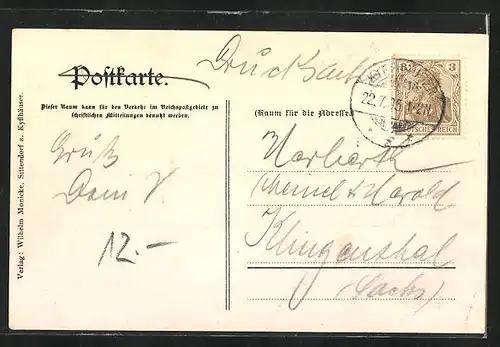 Drucksache
Postkarte.
Dieser Raum kann für den Verkehr im Reichspostgebiete zu
schriftlichen Mitteilungen benutzt werden.
(Raum für die Adresse)
3 3
22.7. 5
DEUTSCHES REICH
Gruß
12.-
Norbert
& Harold
Klingenthal
(Sachs)
Verlag: Wilhelm Monicke, Sittendorf a. Kyffhäuser.